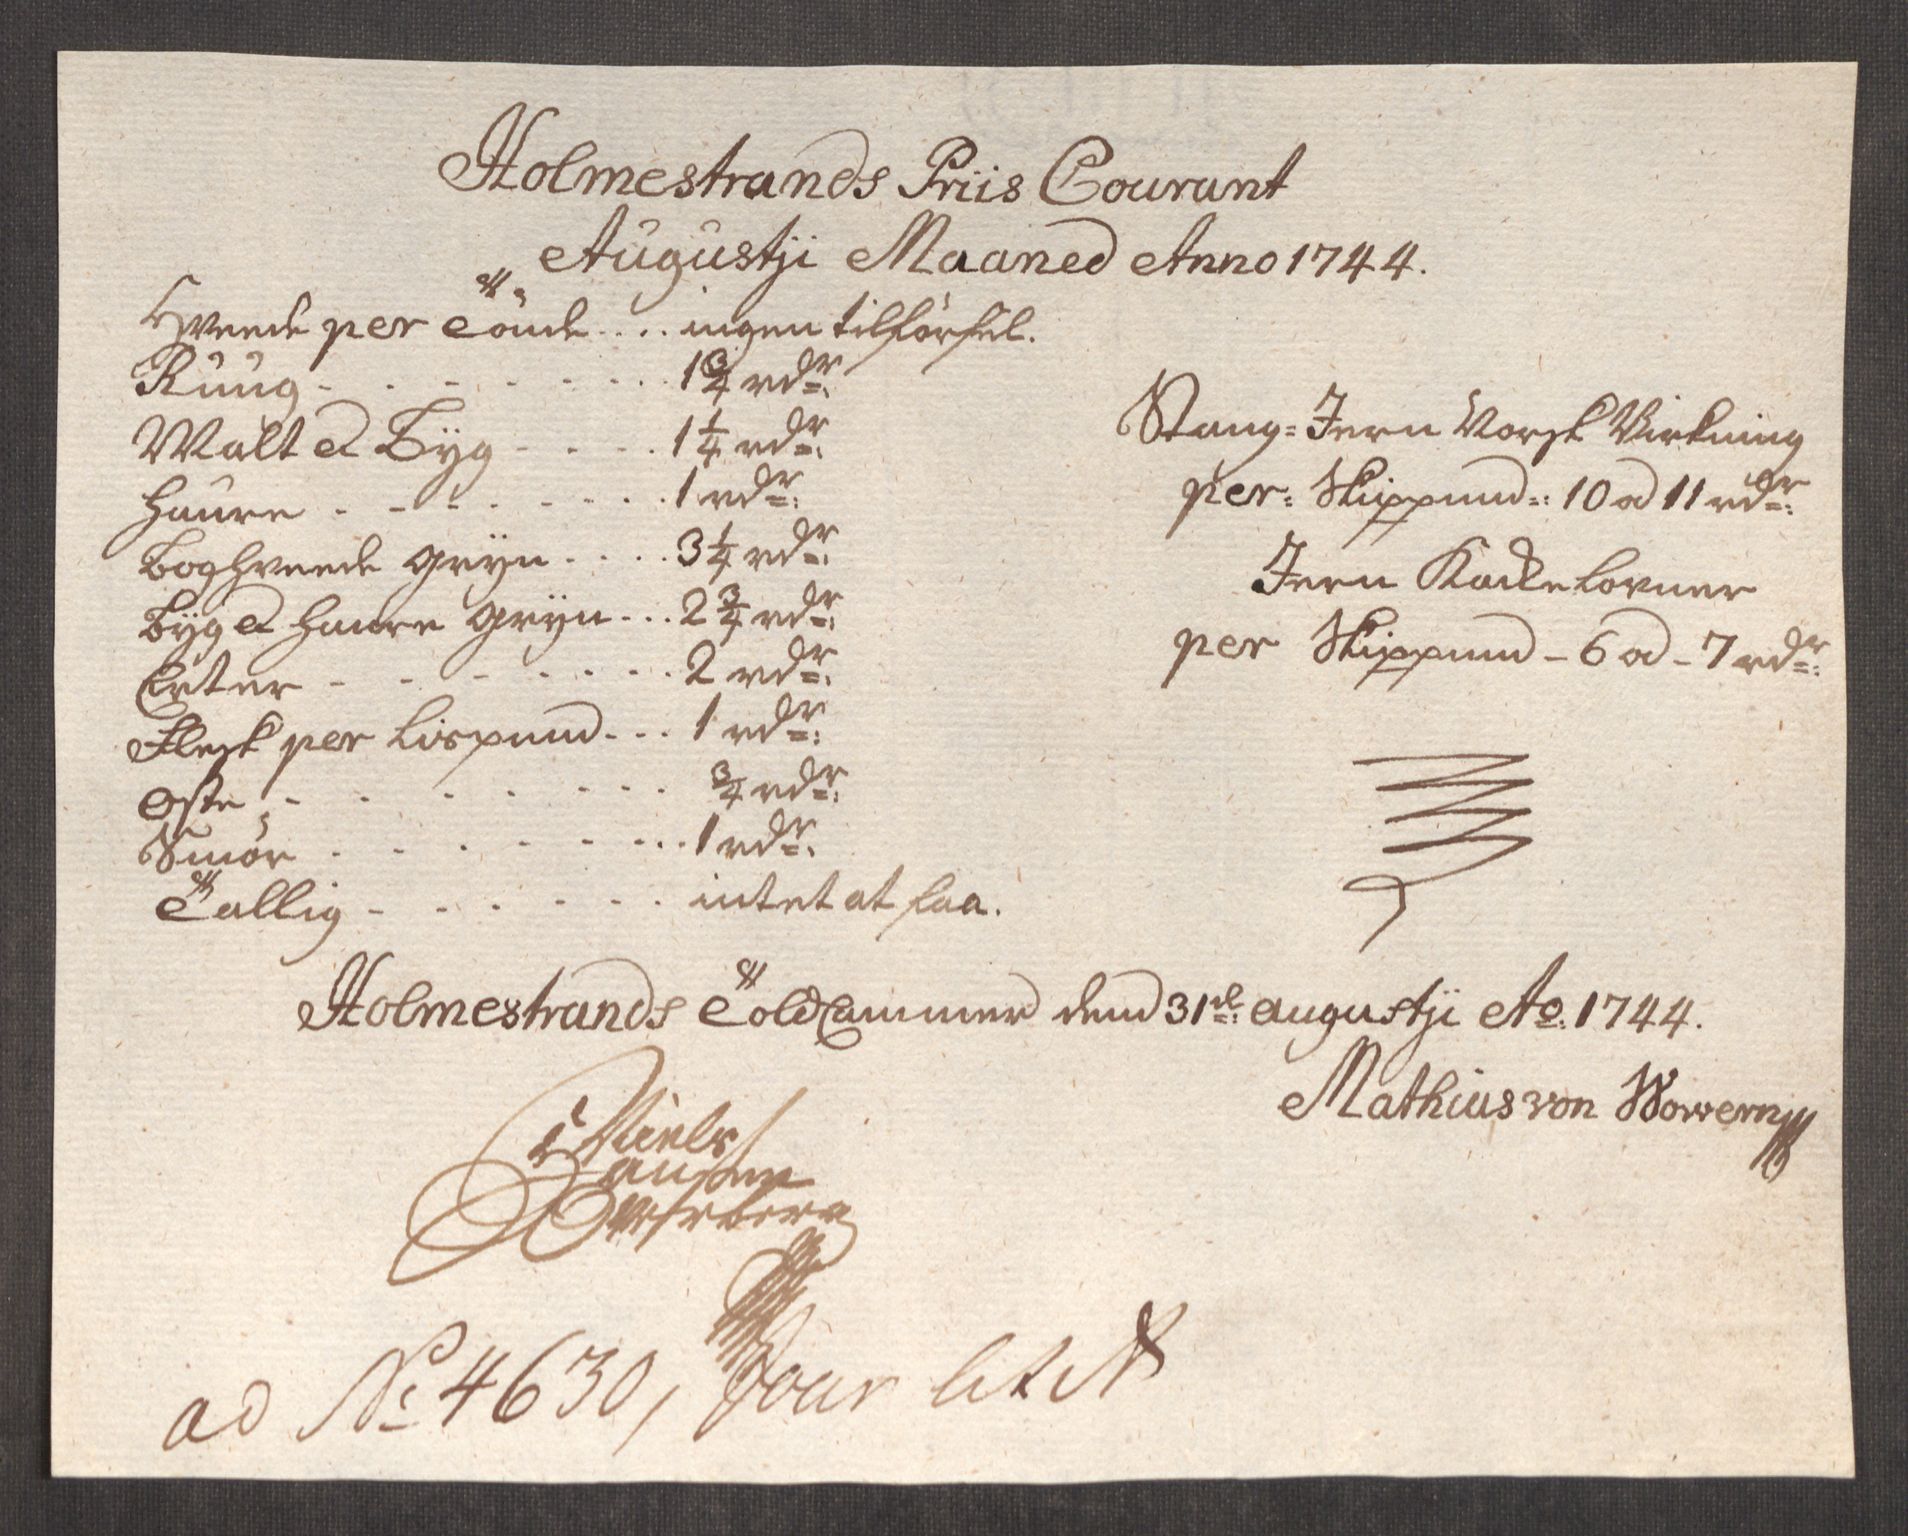 Holmestrands Priis Courant
Augustji Maaned Anno 1744.
Hveede per Tönde .... ingen tilförsel.
Ruug - . . - . - . . . 1 3/4 rdr:
Malt et Byg - . . . . 1 1/4 rdr:
Haure . - - . . . . . 1 rdr:
Boghveede Gryn . . . . 3 1/4 rdr:
Byg et Haure Gryn . . . 2 3/4 rdr:
Erter - . . - . . . . 2 rdr:
Flesk per Lispund . . . 1 rdr:
Oste . - . . . . . . . 3/4 rdr:
Smör . . . . . . . . . 1 rdr:
Tallig - . . . . . . intet at faa.
Stang=Jern Norsk Virkning
per: Skippund: 10 ad 11 rdr:
Jern Kackelovner
per Skippund - 6 ad - 7 rdr:
Holmestrands Told Cammer dend 31de: Augustji Ao: 1744.
Mathias von Wowern
Niels
Hansen
ad No: 4630, Jour Lit A